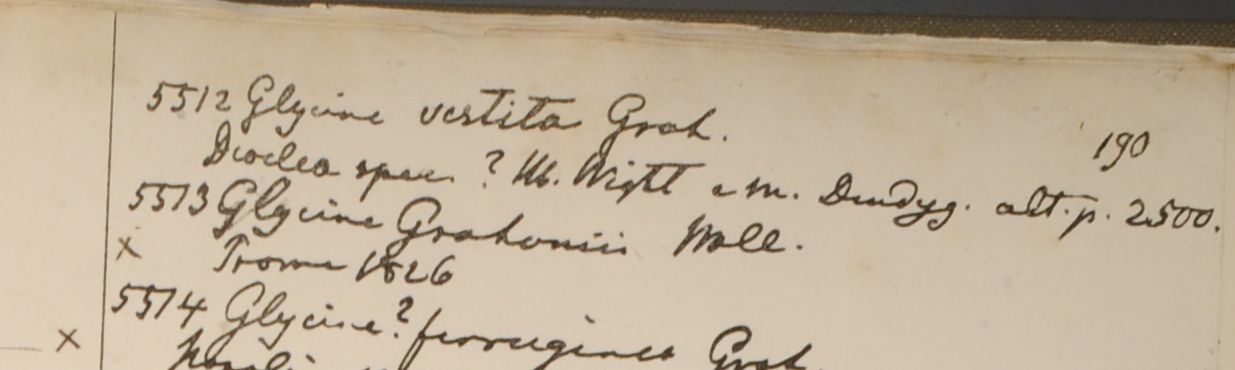 5512 Glycine vestita Grah.
190
Dioclea spec. ? Hb. Wight e m. Dindyg. alt. p. 2500.
5513 Glycine Grahamii Wall.
x Prome 1826
5514 Glycine? ferruginea Grah.
x